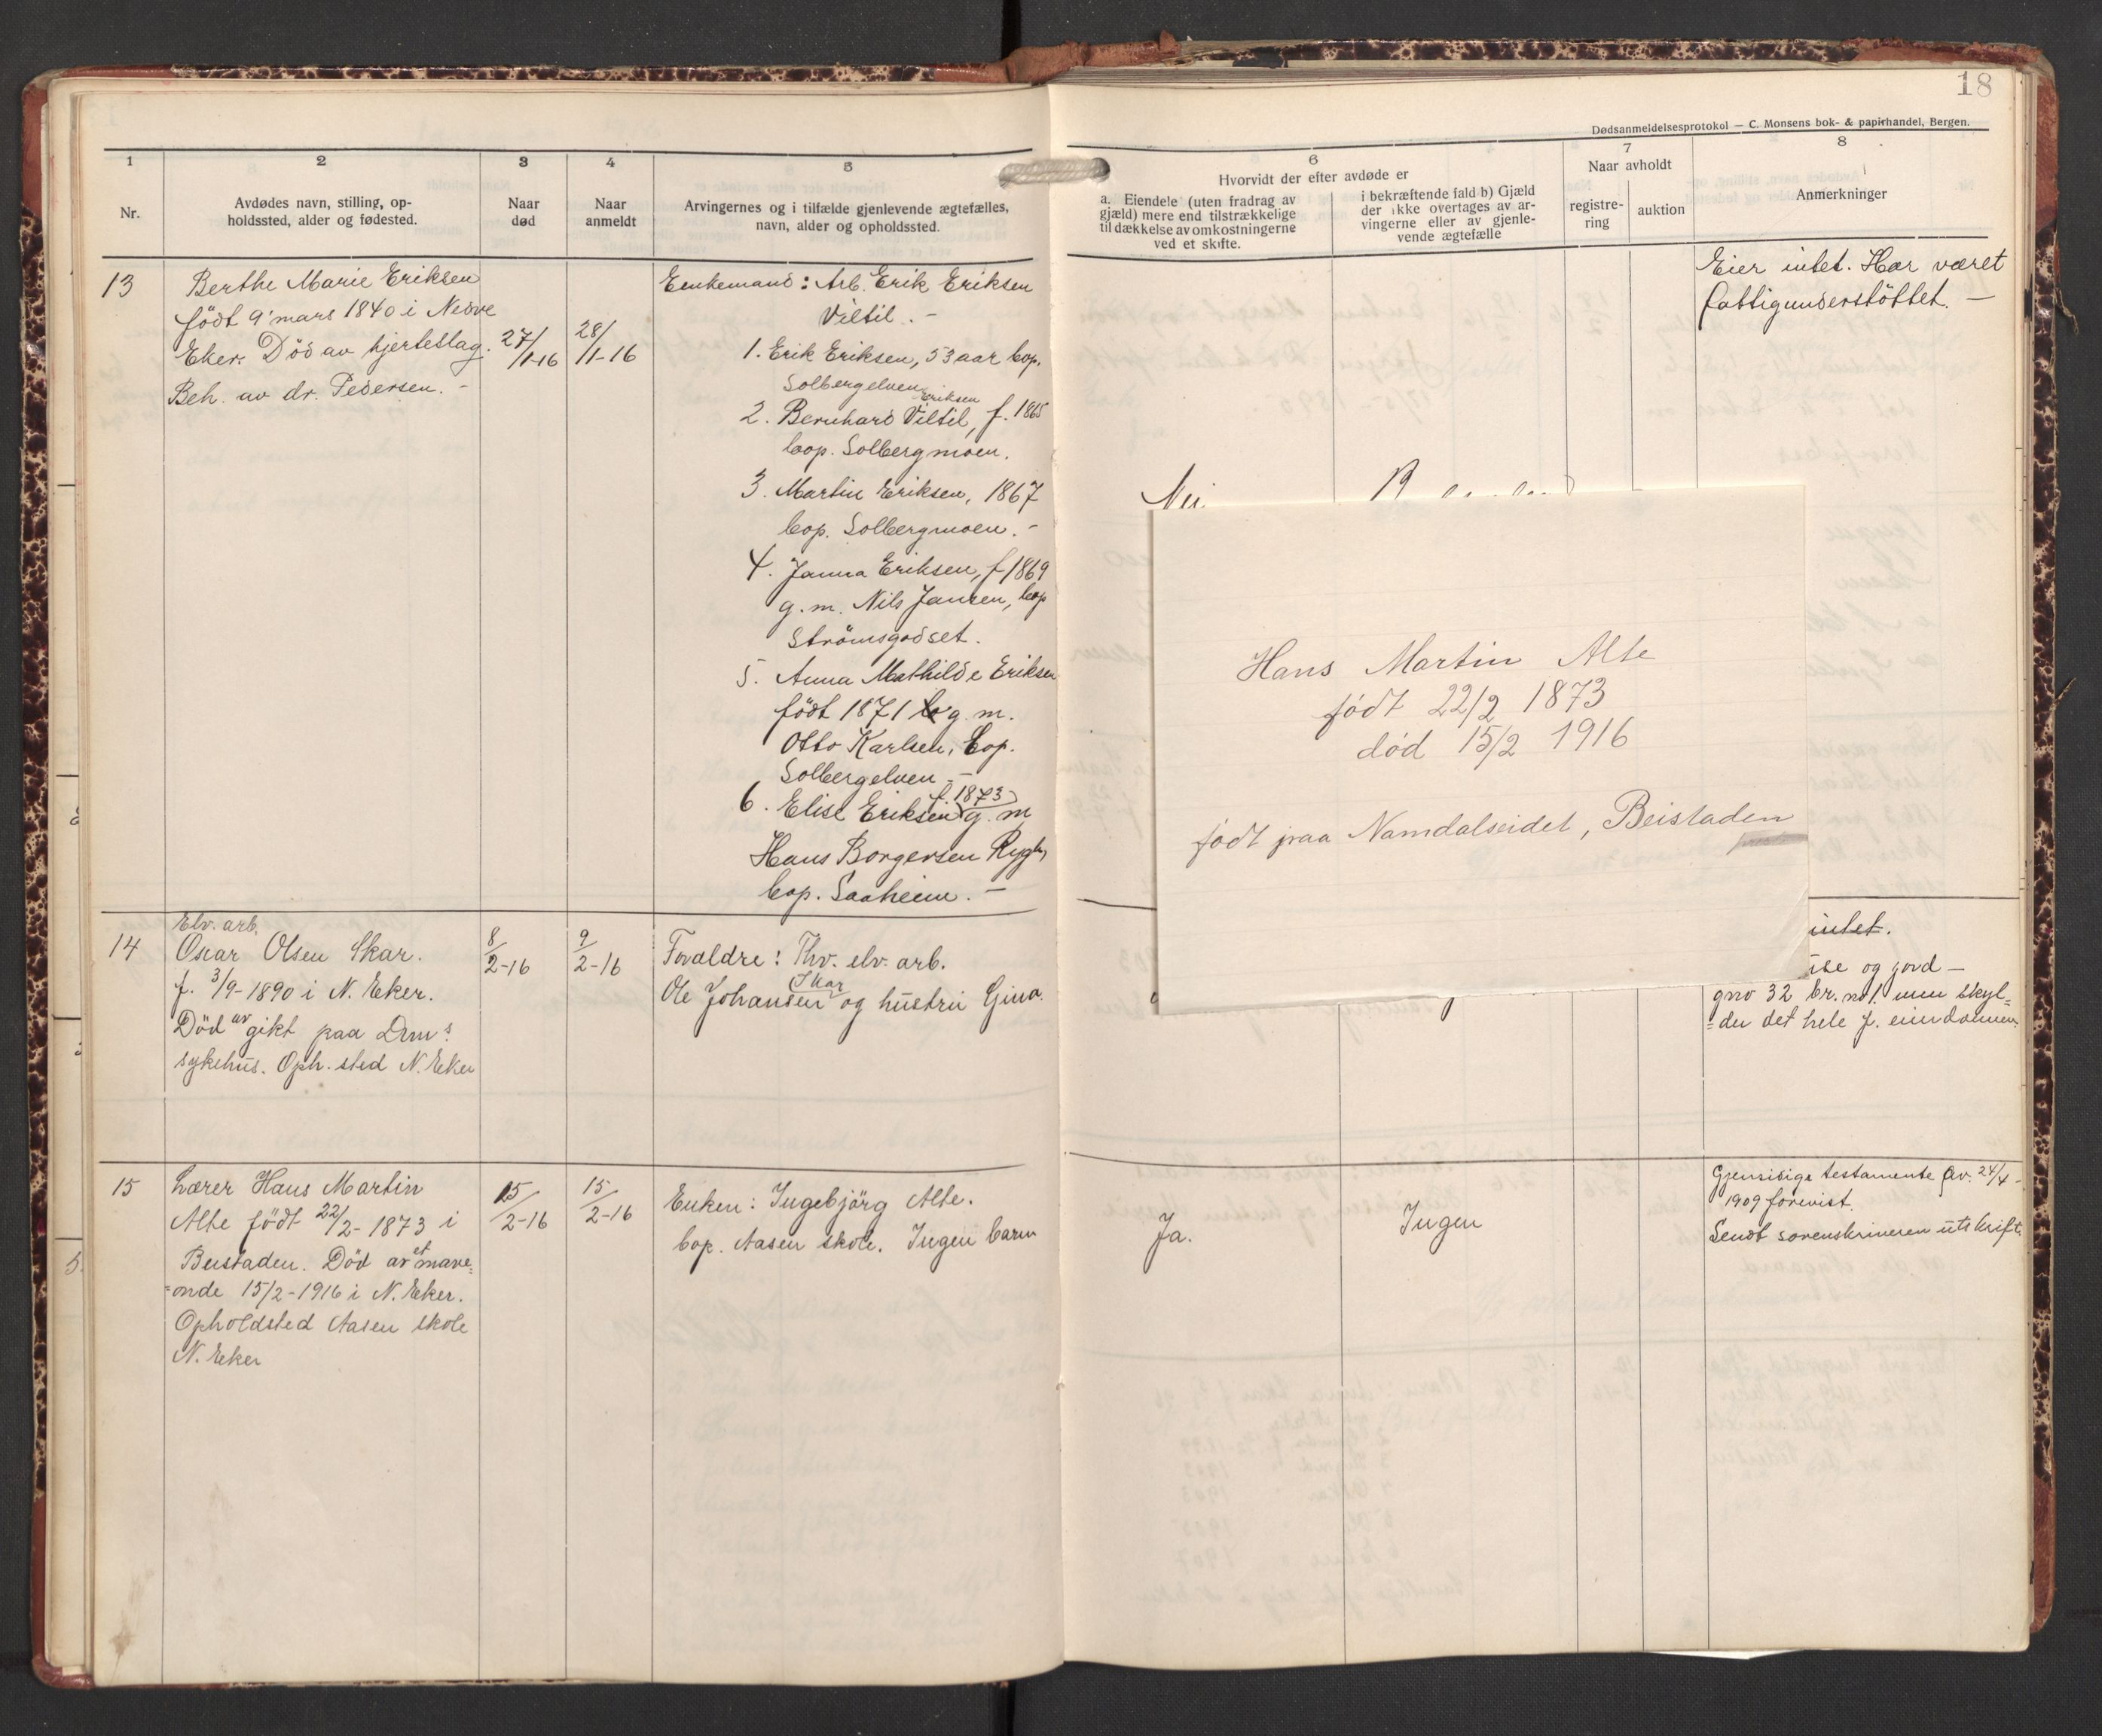 18
Dødsanmeldelsesprotokol — C. Monsens bok- & papirhandel, Bergen.
1
2
3
4
5
Nr.
Avdødes navn, stilling, op-
holdssted, alder og fødested.
Naar
død
Naar
anmeldt
Arvingernes og i tilfælde gjenlevende ægtefælles,
navn, alder og opholdssted.
6
Hvorvidt der efter avdøde er
a. Eiendele (uten fradrag av
gjæld) mere end tilstrækkelige
til dækkelse av omkostningerne
ved et skifte.
i bekræftende fald b) Gjæld
der ikke overtages av ar-
vingerne eller av gjenle-
vende ægtefælle
7
Naar avholdt
registre-
ring
auktion
8
Anmerkninger
13
Berthe Marie Eriksen
født 9' mars 1840 i Nedre
Eker. Død av hjerteslag.
Beh. av dr. Pedersen. -
27/1-16
28/1-16
Enkemand: Arb. Erik Eriksen
Viltil. -
1. Erik Eriksen, 53 aar bop.
Solbergelven
Eriksen
2. Bernhard Viltil, f. 1865
bop. Solbergmoen.
3. Martin Eriksen, 1867
bop. Solbergmoen. -
4. Janna Eriksen, f 1869
g. m. Nils Jansen, bop
Strömsgodset.
5. Anna Mathilde Eriksen
født 1871 g. m.
Otto Karlsen, bop.
Solbergelven -
f. 1873
6. Elise Eriksen g. m
Hans Borgersen Rygh,
bop. Saaheim. -
Eier intet. Har været
fattigunderstöttet. —
Nei
Hans Martin Alte
født 22/2 1873
død 15/2 1916
født paa Namdalseidet, Beistaden
14
Elv. arb.
Oscar Olsen Skar.
f. 3/9-1890 i N. Eker.
Död av gikt paa Dms
sykehus. Oph. sted N. Eker
8/2-16
9/2-16
Forældre: Thv. elv. arb.
Skar
Ole Johansen og hustru Gina.
intet.
og jord —
gno 32 br. no 1. men skyl=
=der det hele f. eiendommen.
15
Lærer Hans Martin
Alte født 22/2-1873 i
Beistaden. Död av et mave=
=onde 15/2-1916 i N. Eker.
Opholdsted Aasen skole
N. Eker
15/2-16
15/2-16
Enken: Ingebjörg Alte.
bop. Aasen skole. Ingen barn
Ja.
Ingen
Gjensidige testamente av 24/4-
1909 forevist.
Sendt sorenskriveren utskrift.